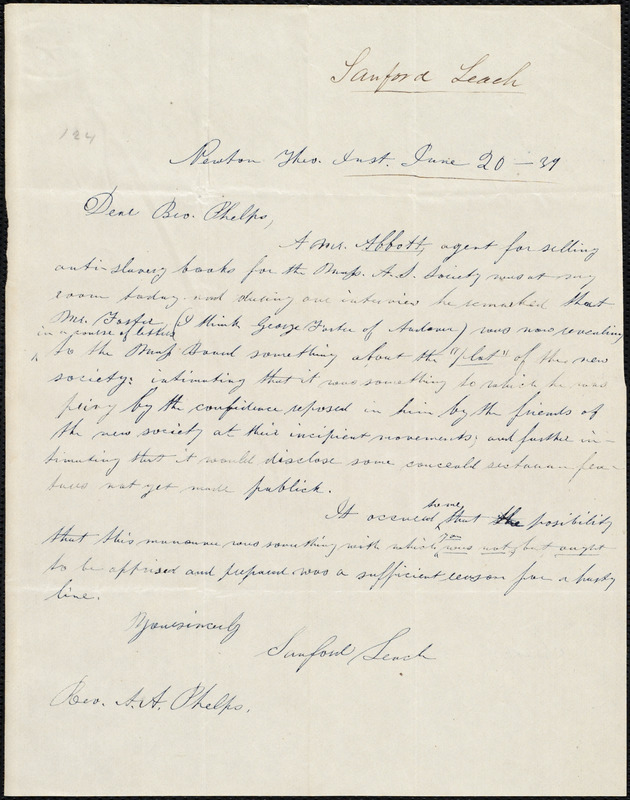 Sanford Leach
124
Newton Theo. Inst. June 20 - 39
Dear Bro. Phelps,
A Mr. Abbott, agent for selling
anti-slavery books for the Mass. A. S. Society was at my
room today and during our interview he remarked that
Mr. Foster (I think George Foster of Andover) was now revealing
in a course of letters
to the Mass Board something about the "plot" of the new
society: intimating that it was something to which he was
privy by the confidence reposed in him by the friends of
the new society at their incipient movements; and further in-
timating that it would disclose some conceald sectarian fea-
tures not yet made publick.
It occured to me that the posibility
that this manœuvre was something with which you were not, but ought
to be apprised and prepared was a sufficient reason for a hasty
line.
Yours sincerely
Sanford Leach
Rev. A. A. Phelps.